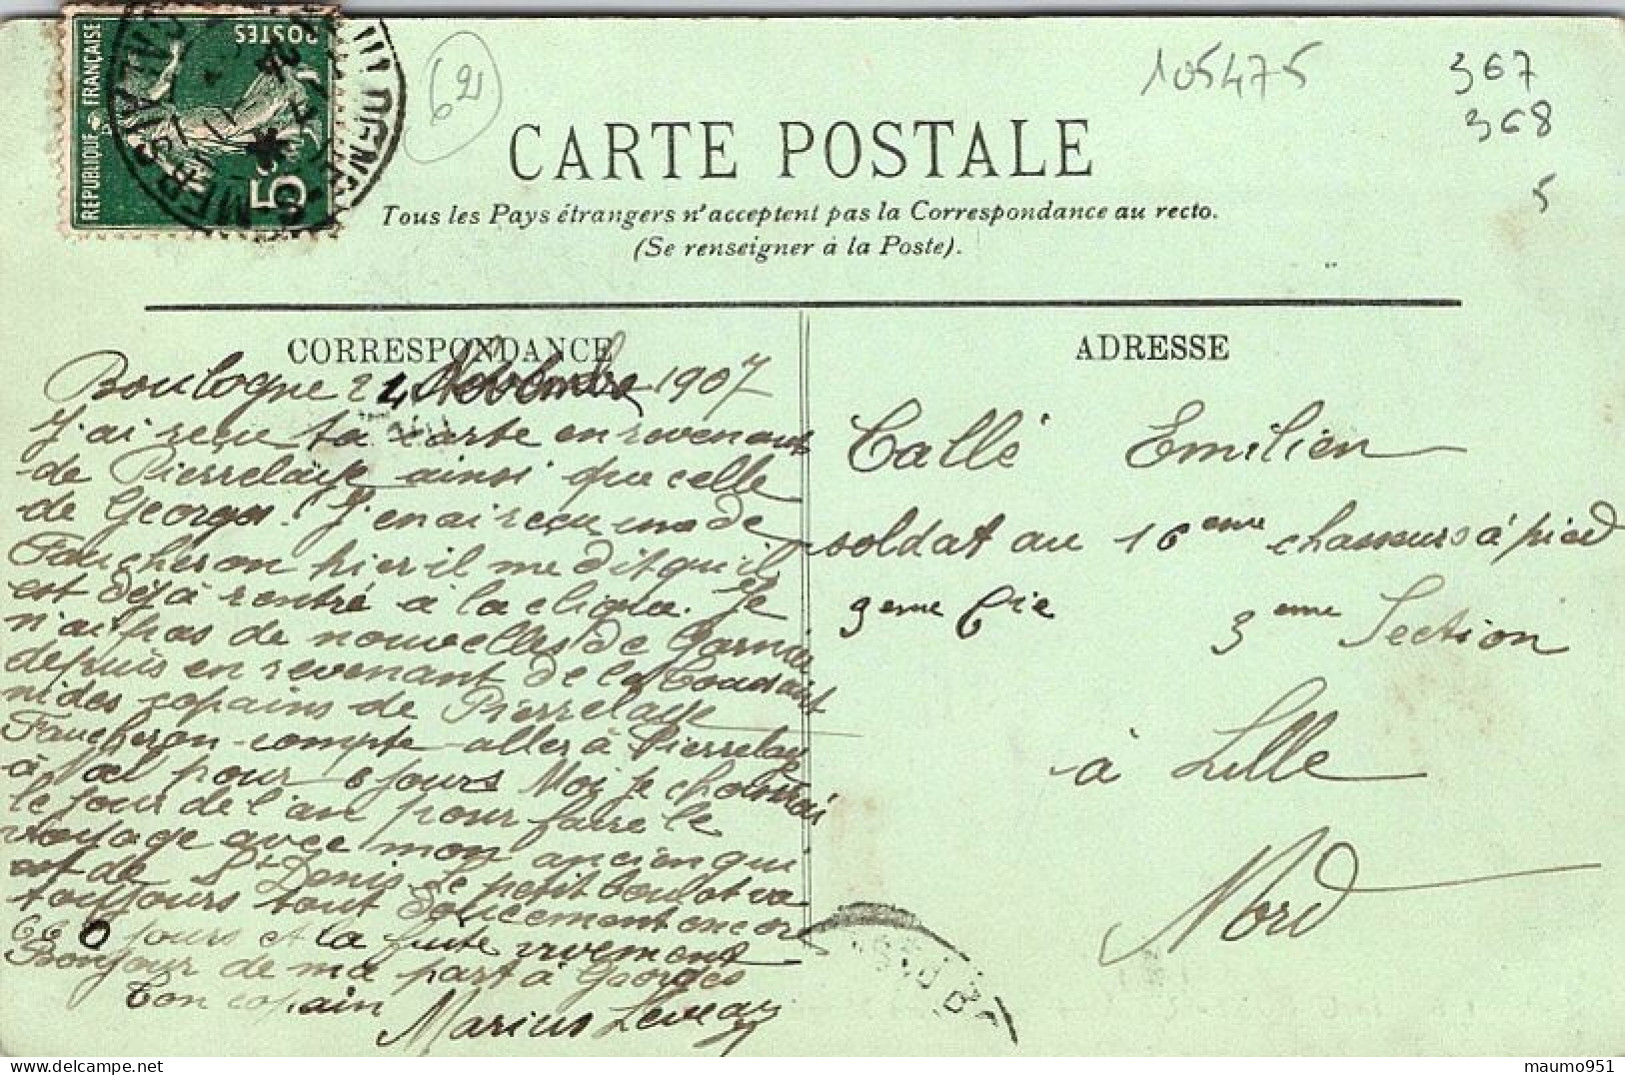 REPUBLIQUE FRANÇAISE
POSTES
5c
BOULOGNE-S-MER
PAS DE CALAIS
62
105475
367
368
5
CARTE POSTALE
Tous les Pays étrangers n'acceptent pas la Correspondance au recto.
(Se renseigner à la Poste).
CORRESPONDANCE
Boulogne 24 Novembre 1907
J'ai reçue ta carte en revenant
de Pierrelaye ainsi que celle
de Georges. J'en ai reçu une de
Faucheron hier il me dit qu'il
est déjà rentré à la clique. Je
n'ai pas de nouvelles de Garnier
depuis en revenant de la
ni des copains de Pierrelaye
Faucheron compte aller à Pierrelaye
à Noël pour 6 jours Moi je choisirai
le jour de l'an pour faire le
voyage avec mon ancien qui
est de St Denis. Le petit boulot va
toujours tout doucement encore
660 jours et la fuite vivement
Bonjour de ma part à Georges
Ton copain
Marius
ADRESSE
Callé Emilien
soldat au 16eme chasseurs à pied
3eme Cie 3eme Section
à Lille
Nord
maumo951